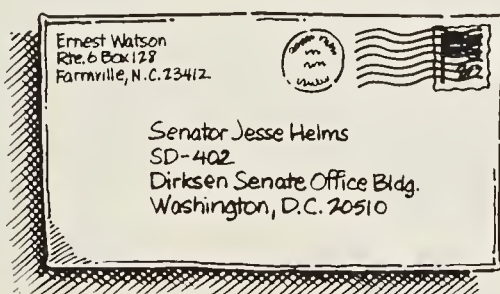 Ernest Watson
Rte.6 Box 128
Farmville, N.C. 23412
Senator Jesse Helms
SD-402
Dirksen Senate Office Bldg.
Washington, D.C. 20510